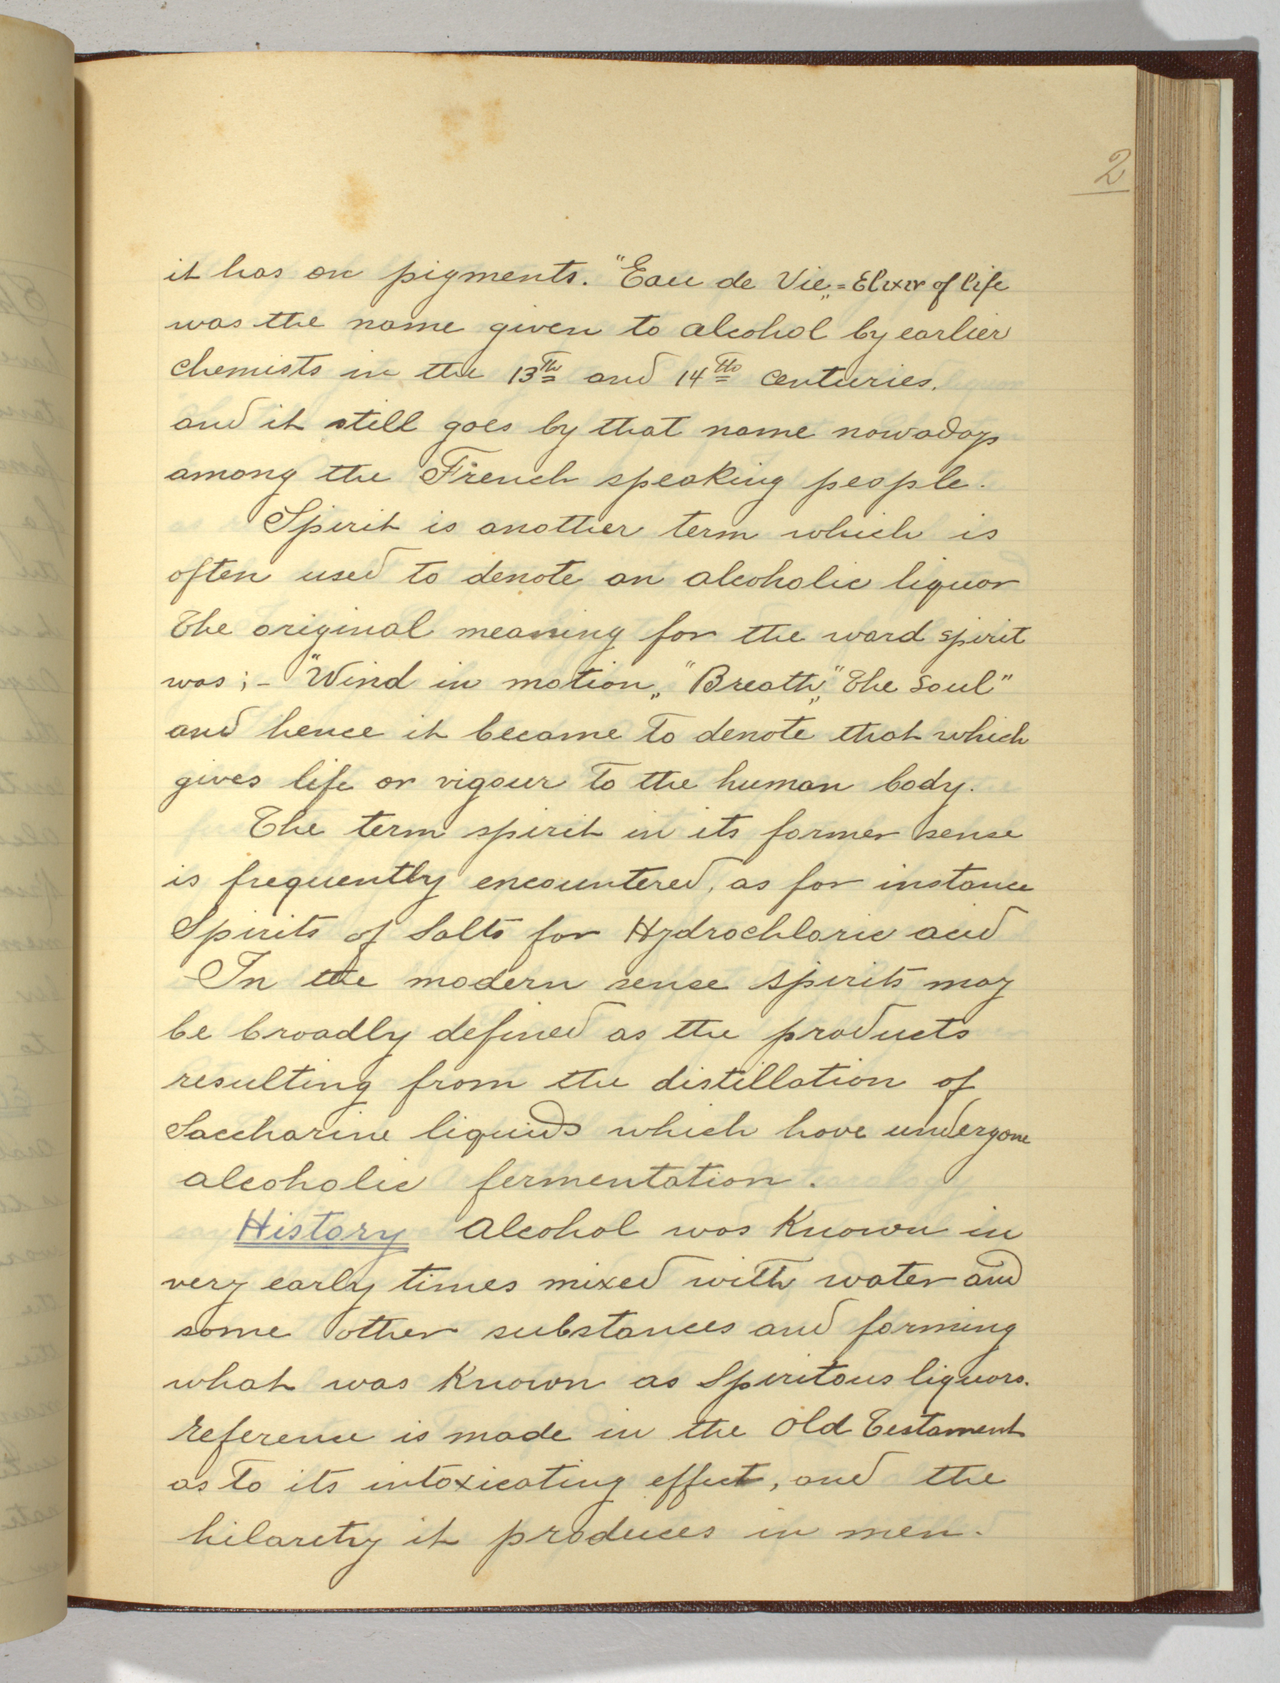 2
it has on pigments. "Eau de Vie„ = Elixir of life
was the name given to alcohol by earlier
chemists in the 13th and 14th centuries.
and it still goes by that name nowadays
among the French speaking people.
Spirit is another term which is
often used to denote an alcoholic liquor
The original meaning for the word spirit
was ;- "Wind in motion„ "Breath„ "The Soul"
and hence it became to denote that which
gives life or vigour to the human body.
The term spirit in its former sense
is frequently encountered, as for instance
Spirits of Salts for Hydrochloric acid
In the modern sense spirits may
be broadly defined as the products
resulting from the distillation of
Saccharine liquids which have undergone
alcoholic fermentation.
History Alcohol was known in
very early times mixed with water and
some other substances and forming
what was known as Spiritous liquors.
reference is made in the Old Testament
as to its intoxicating effect, and the
hilarety it produces in men.